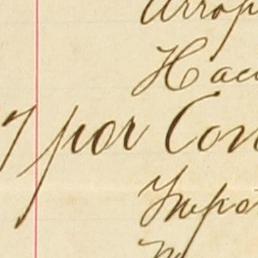 Arrop
Hac
y por Con
Impo